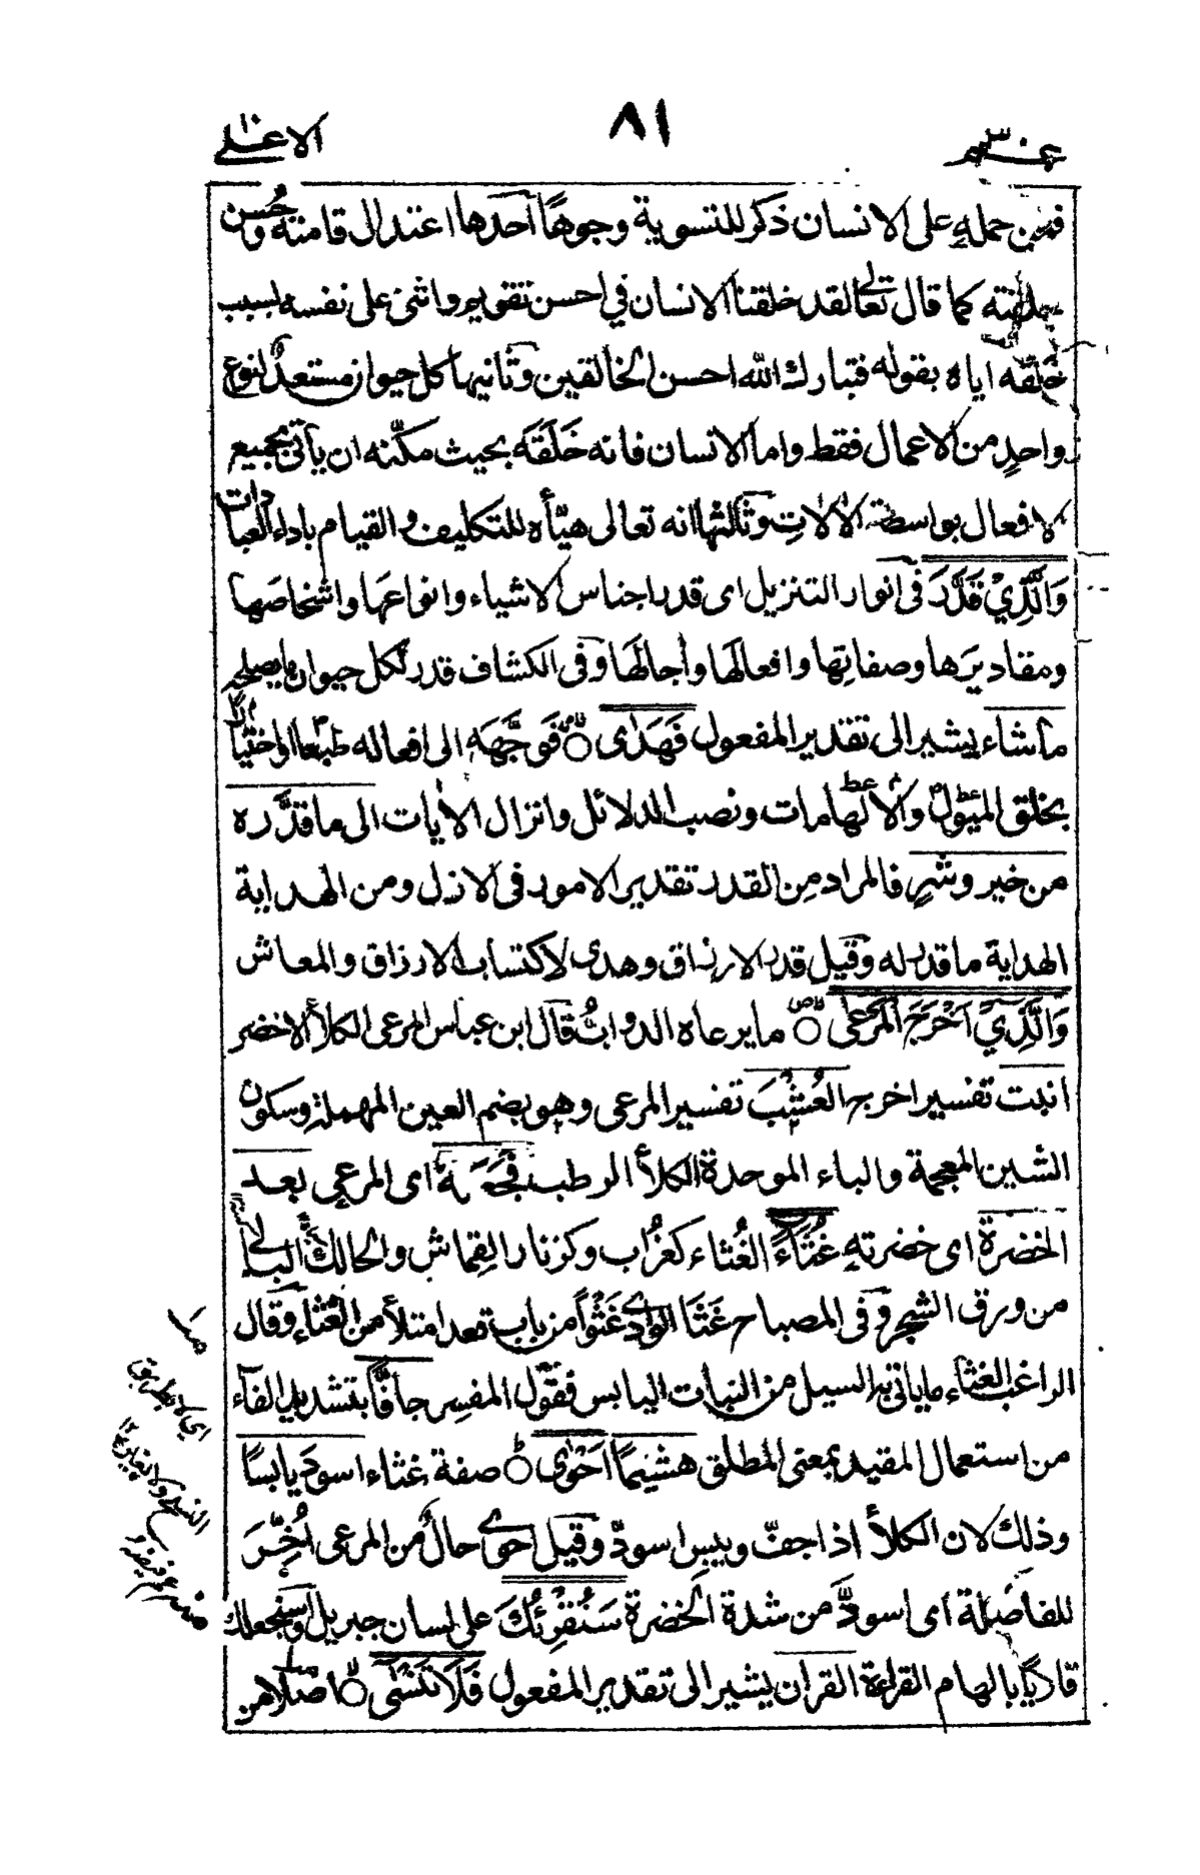 عم ٣٠
٨١
الاعلى
فمن حمله على الانسان ذكر للتسوية وجوهًا احدها اعتدال قامته وحُسن
خلقته كما قال تعالى لقد خلقنا الانسان في احسن تقويم واثنى على نفسه بسبب
خلقه اياه بقوله فتبارك الله احسن الخالقين وثانيها كل حيوان مستعدٌّ لنوع
واحدٍ من الاعمال فقط واما الانسان فانه خَلَقَه بحيث مكّنه ان يأتى بجميع
الافعال بواسطة الألات وثالثها انه تعالى هيّأه للتكليف والقيام باداء العبادات
وَالَّذِيْ قَدَّرَ فى انوار التنزيل اى قدر اجناس الاشياء وانواعَها واشخاصَها
ومقاديرَها وصفاتِها وافعالَها وأجالَها وفى الكشاف قدر لكل حيوان ما يصلحه
ما شاء يشير الى تقدير المفعول فَهَدٰى ○ فَوَجَّهَه الى افعاله طبعًا او اختيارًا
بخلق الميول والالهامات ونصب الدلائل وانزال الأيات الى ما قدَّره
من خير وشرٍ فالمراد مِن القدر تقدير الامور فى الازل ومن الهداية
الهداية ما قدر له وقيل قدر الارزاق وهدى لاكتساب الارزاق والمعاش
وَالَّذِيْٓ اَخْرَجَ الْمَرْعٰى ○ ما يرعاه الدوابُّ قال ابن عباس المرعى الكلأ الاخضر
انبت تفسير اخرج العُشْبَ تفسير المرعى وهو بضم العين المهملة وسكون
الشين المعجمة والباء الموحدة الكلأ الرطب فَجَعَلَهٗ اى المرعى بعد
الخضرة اى خضرته غُثَآءً الغُثاء كغُراب وكزنار القِماش والهالك البالى
من ورق الشجر وفى المصباح غَثَا الوادى غَثْوًا من باب قعد امتلأ من الغثاء وقال
الراغب الغثاء ما ياتى به السيل من النبات اليابس فقول المفسر جافًّا بتشديد الفاء
من استعمال المقيد بمعنى المطلق هشيمًا اَحْوٰى ○ صفة غثاء اسودَ يابسًا
وذلك لان الكلأ اذا جفّ ويبس اسودّ وقيل احوى حالٌ من المرعى اُخِّرَ
للفاصلة اى اسودَّ من شدة الخضرة سَنُقْرِئُكَ على لسان جبريل او سنجعلك
قاريًا بالهام القراءة القرأن يشير الى تقدير المفعول فَلَا تَنْسٰٓى ○ اصلا من